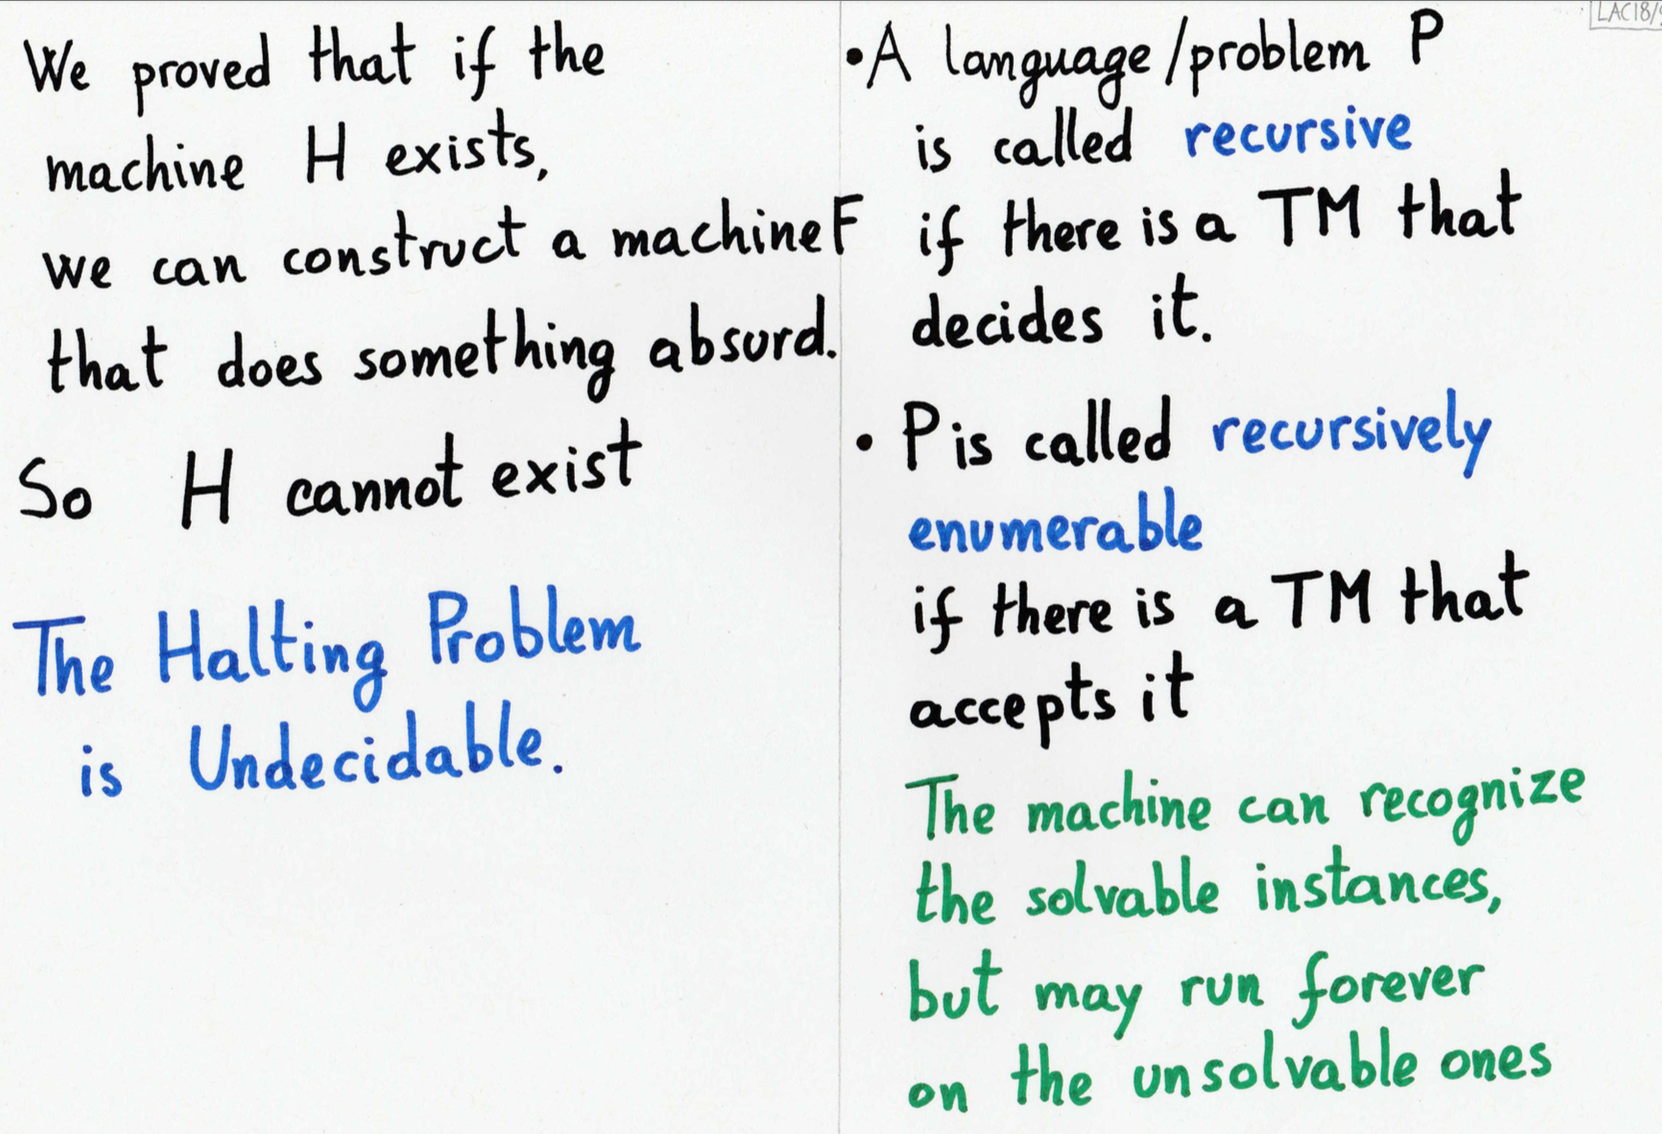 We proved that if the
machine H exists,
we can construct a machine F
that does something absurd.
So H cannot exist
The Halting Problem
is Undecidable.
LAC18/
• A language/problem P
is called recursive
if there is a TM that
decides it.
• P is called recursively
enumerable
if there is a TM that
accepts it
The machine can recognize
the solvable instances,
but may run forever
on the unsolvable ones